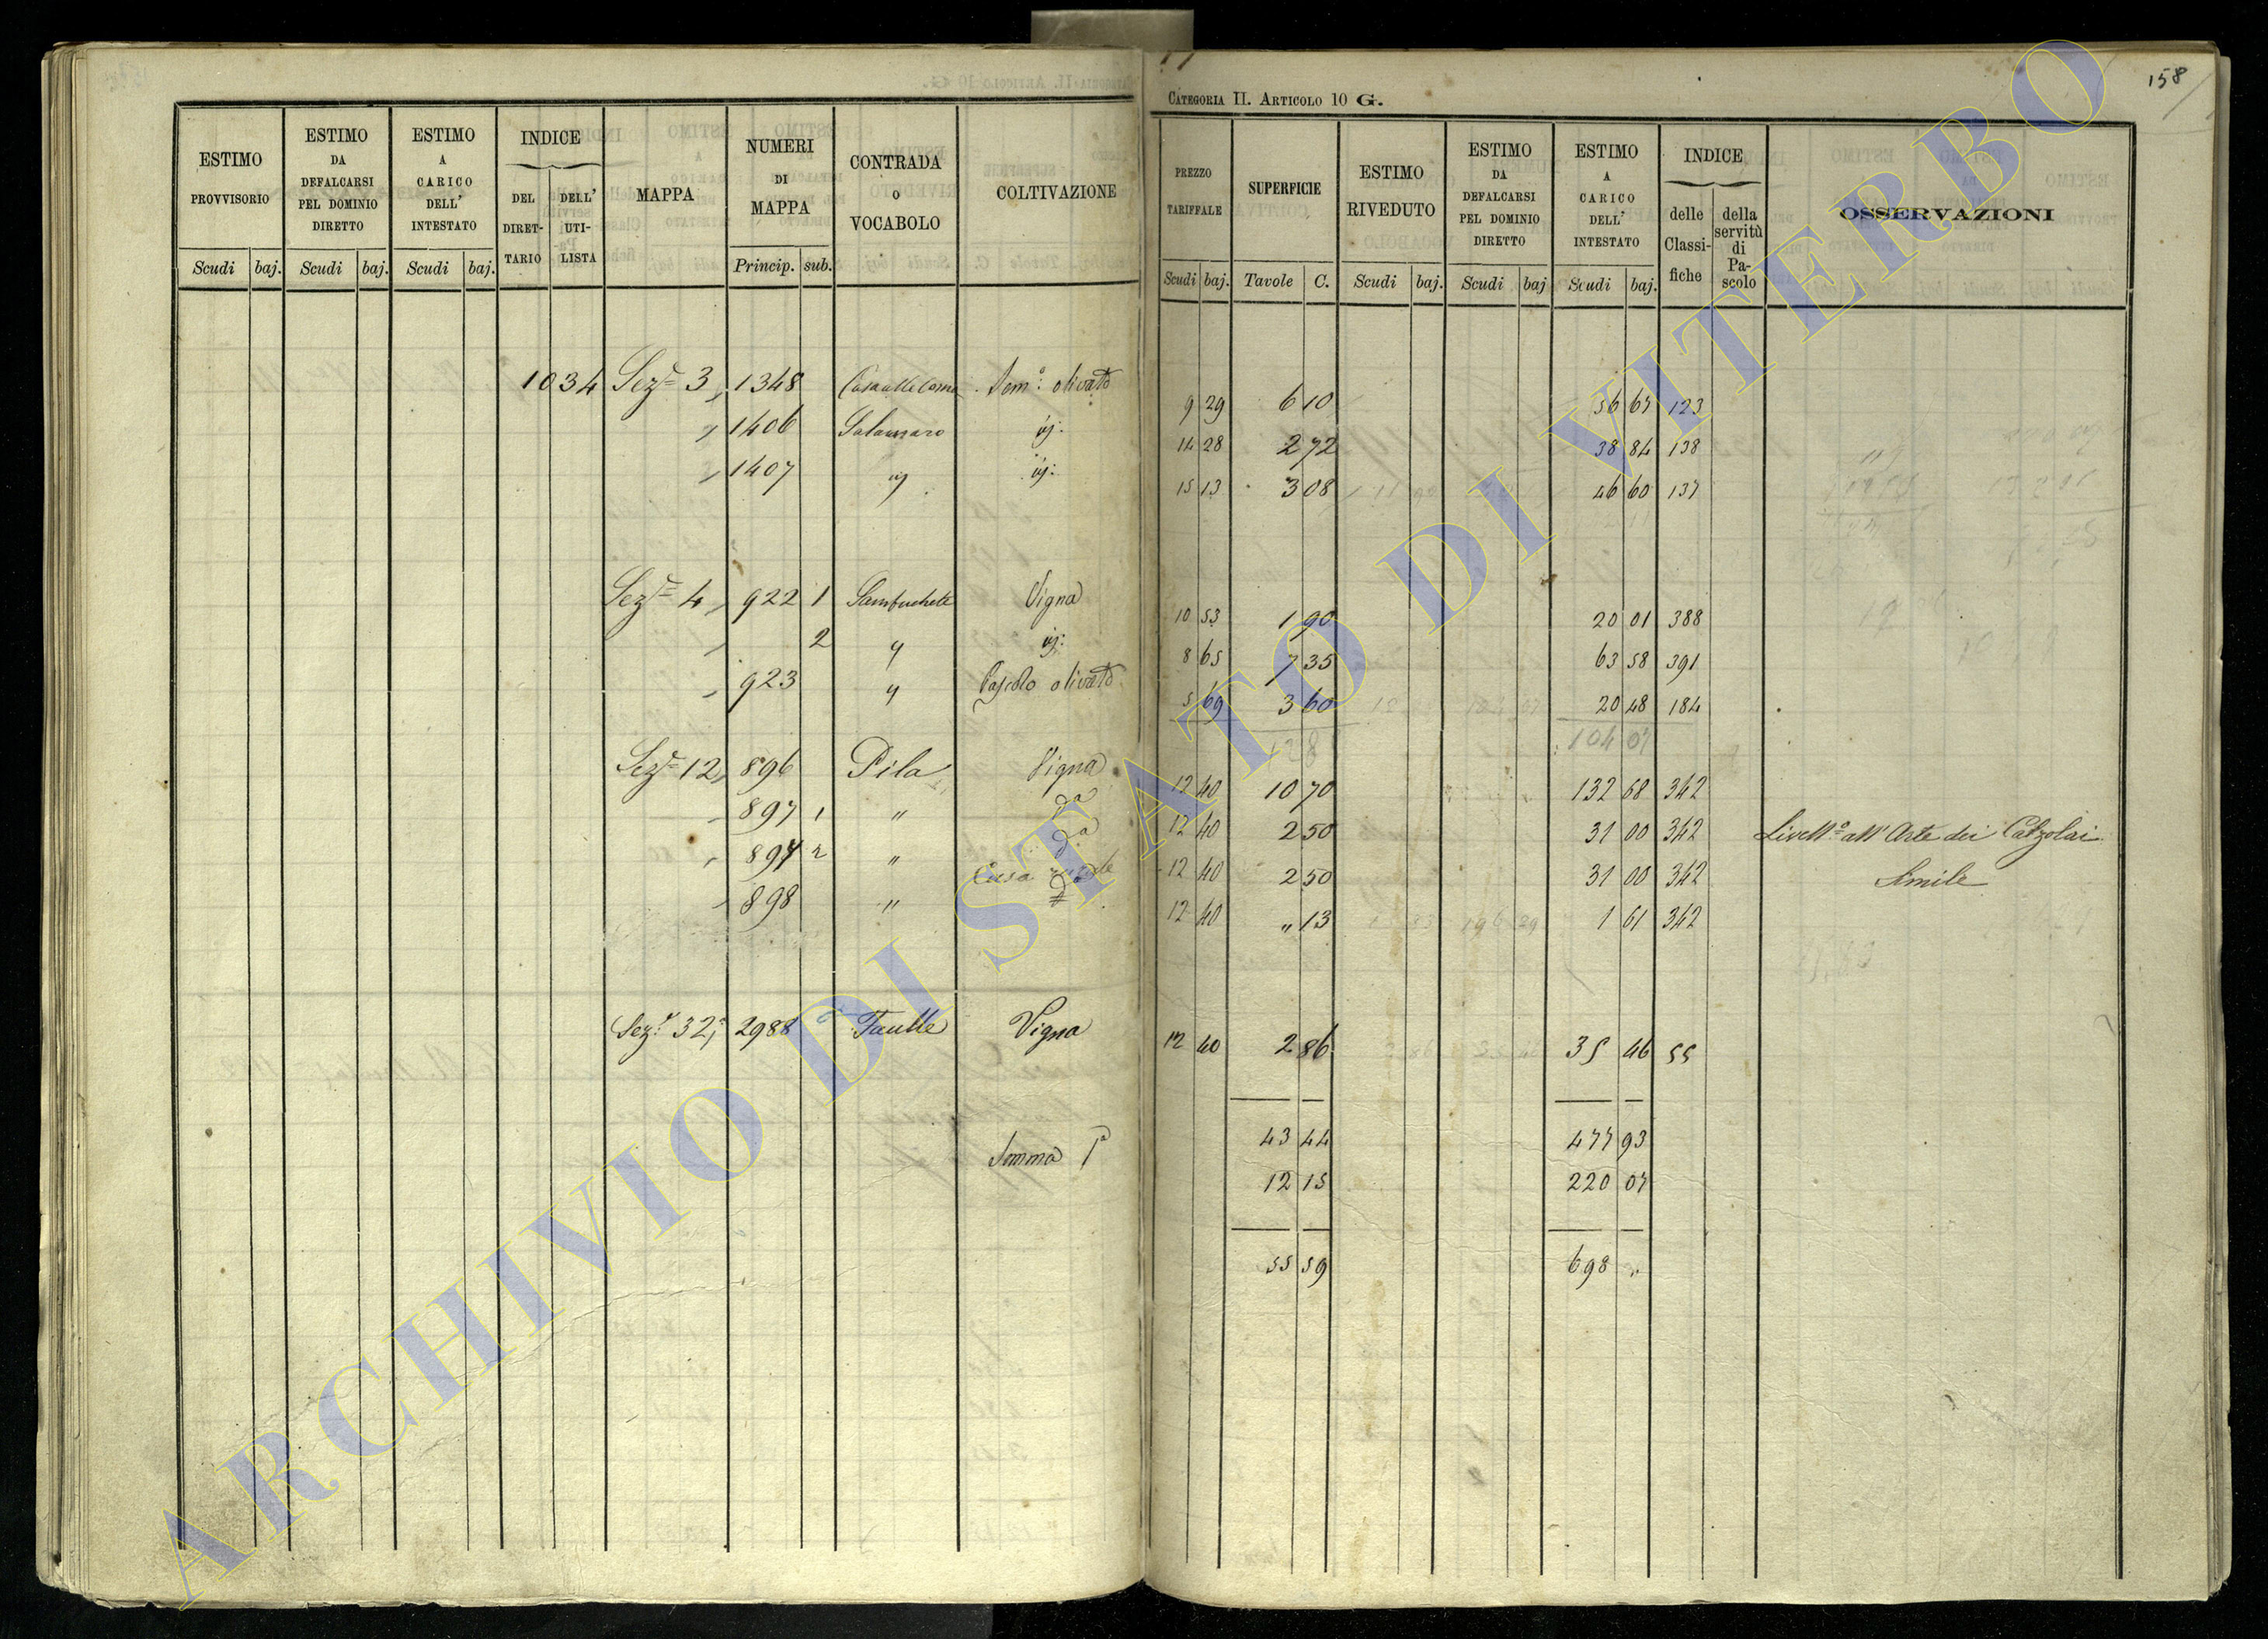 CATEGORIA II. ARTICOLO 10 G.
158
ESTIMO PROVVISORIO
ESTIMO DA DEFALCARSI PEL DOMINIO DIRETTO
ESTIMO A CARICO DELL' INTESTATO
INDICE
DEL DIRET-TARIO
DELL' UTI-LISTA
MAPPA
NUMERI DI MAPPA
CONTRADA o VOCABOLO
COLTIVAZIONE
Scudi baj. Scudi baj. Scudi baj. Princip. sub.
PREZZO TARIFFALE
SUPERFICIE
ESTIMO RIVEDUTO
ESTIMO DA DEFALCARSI PEL DOMINIO DIRETTO
ESTIMO A CARICO DELL' INTESTATO
INDICE
delle Classi-fiche
della servitù di Pa-scolo
OSSERVAZIONI
Scudi baj. Tavole C. Scudi baj. Scudi baj Scudi baj.
1034 Sez.e 3, 1348 Sem.o olivato 9 29 6 10 56 67 123
" 1406 id: 14 28 2 72 38 84 138
" 1407 id id: 15 13 3 08 46 60 137
Sez.e 4, 922 1 Sambuchete Vigna 10 53 1 90 20 01 388
" 2 " id: 8 65 7 35 63 58 391
" 923 " Pascolo olivato 5 69 3 60 20 48 184
104 07
Sez.e 12, 896 Pila Vigna 12 40 10 70 132 68 342
" 897 1 " da 12 40 2 50 31 00 342 Livell.o all'Arte dei Calzolari
" 897 2 " da 12 40 2 50 31 00 342 Simile
Casa
" 898 " 12 40 " 13 1 61 342
Sez.e 32, 2988 Taulle Vigna 12 40 2 86 35 46 55
43 44 477 93
Somma 1a
12 15 220 07
55 59 698 "
ARCHIVIO DI STATO DI VITERBO